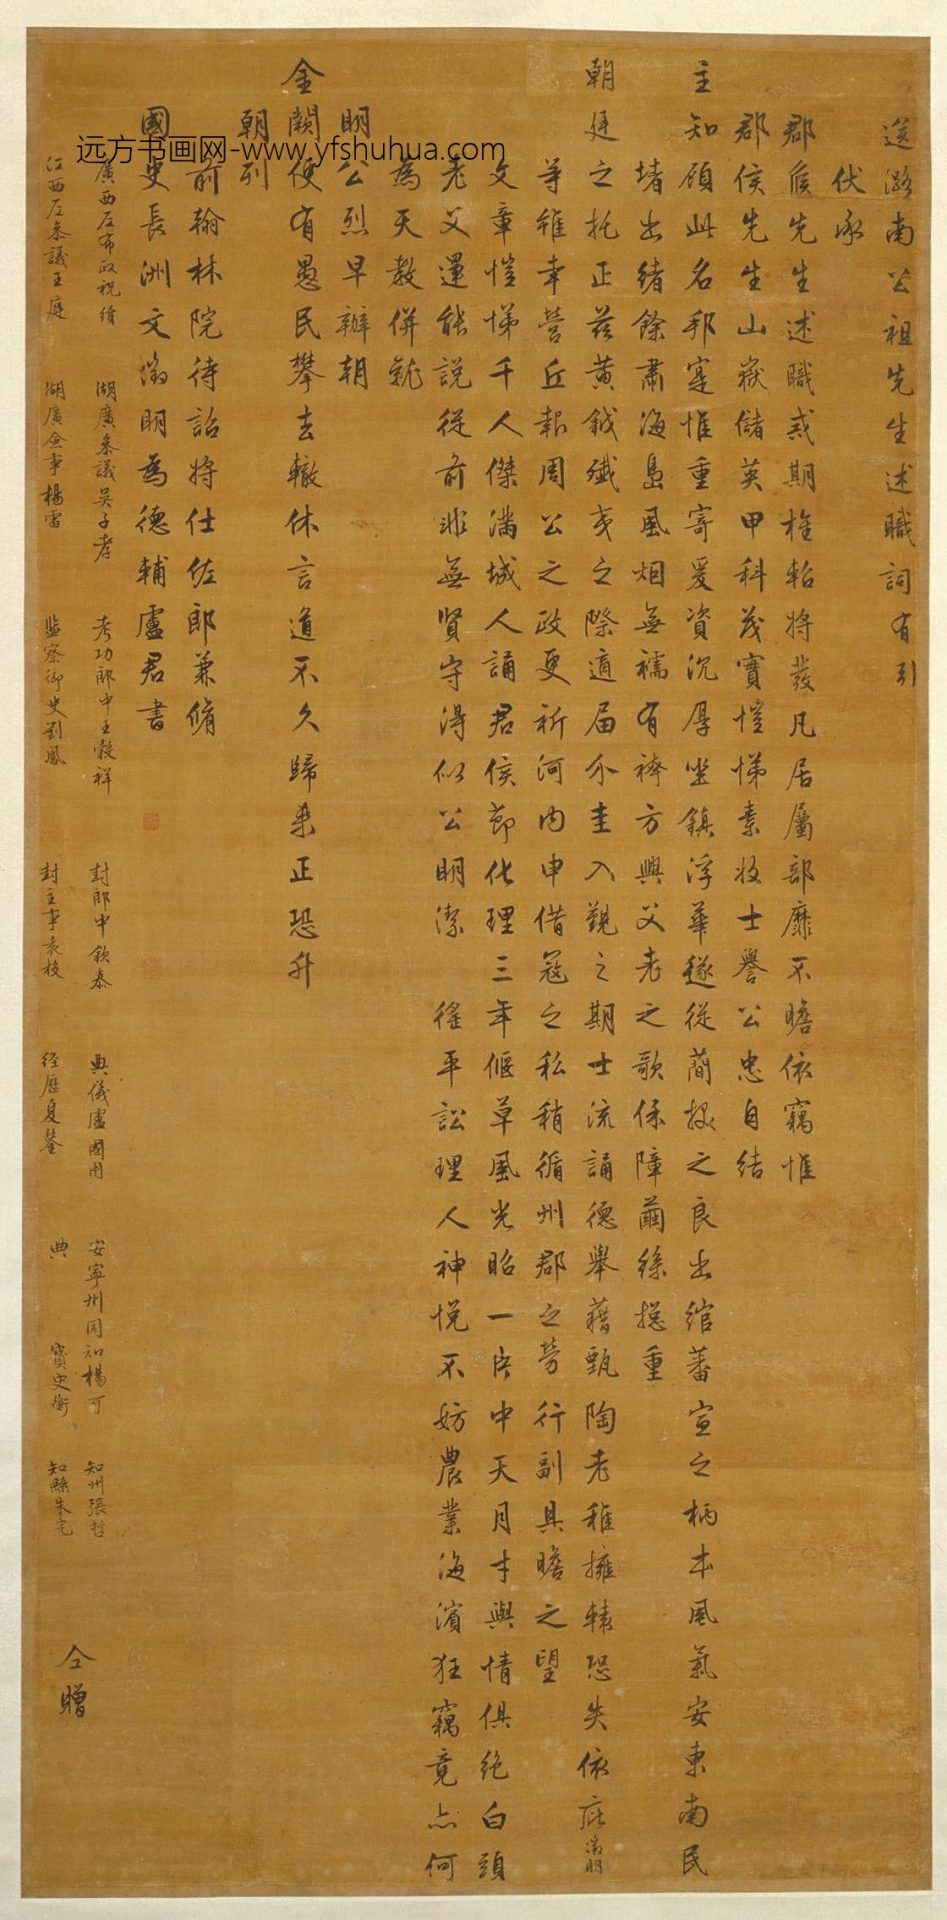 送潞南公祖先生述職詞有引
伏承
郡侯先生述職戒期旌軺將發凡居屬部靡不瞻依竊惟
郡侯先生山嶽儲英甲科茂實愷悌素收士譽公忠自結
主知顧此名邦寔惟重寄爰資沉厚坐鎮浮華遂從蘭掖之良出綰蕃宣之柄本風氣安東南民
堵出緒餘肅海島風烟無襦有袴方興父老之歌保障繭絲摠重
朝廷之托正茲黃鉞殲夷之際適届介圭入覲之期士流誦德舉藉甄陶老稚擁轅恐失依庇徵明
等雖幸營丘報周公之政更祈河內申借寇之私稍循州郡之勞行副具瞻之望
文章愷悌千人傑滿城人誦君侯節化理三年偃草風光昭一片中天月才與情俱絕白頭
老父還能說從前非無賢守得似公明潔 徭平訟理人神悅不妨農業海濱狂竊竟亦何
為天教併就
明公烈早辦朝
金闕便有愚民攀去轍休言道不久歸來正恐升
朝列
前翰林院待詔將仕佐郎兼脩
國史長洲文徵明為德輔盧君書
廣西左布政祝續 湖廣參議吳子孝 考功郎中王穀祥 封郎中欽泰 典儀盧國用 安寧州同知楊可 知州張哲
江西左參議王庭 湖廣僉事楊雷 監察御史劉鳳 封主事袁校 經歷夏鍪 典 寶史衡 知縣朱完
仝贈
远方书画网-www.yfshuhua.com